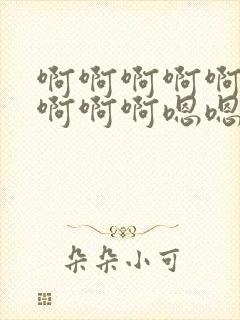 啊啊啊啊啊
啊啊啊嗯嗯
朵朵小可